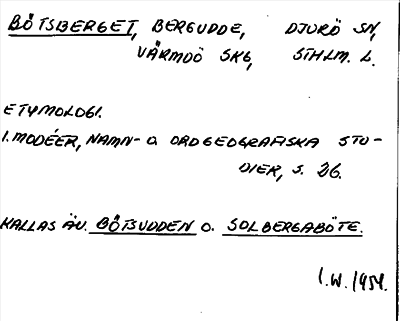 BÖTSBERGET, BERGUDDE, DJURÖ SN,
VÄRMDÖ SKG, STHLM. L.
ETYMOLOGI.
I. MODÉER, NAMN- O. ORDGEOGRAFISKA STU-
DIER, S. 26.
KALLAS ÄV. BÖTSUDDEN O. SOLBERGABÖTE.
I.W. 1954.